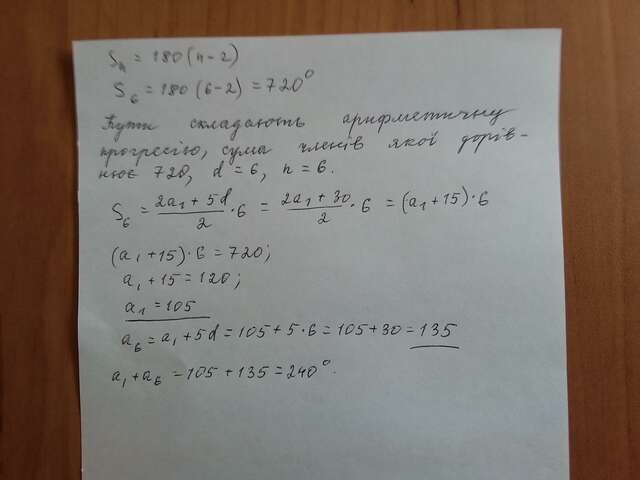 Sₙ = 180(n-2)
S₆ = 180(6-2) = 720°
Кути складають арифметичну
прогресію, сума членів якої дорів-
нює 720, d = 6, n = 6.
S₆ = (2a₁ + 5d)/2 · 6 = (2a₁ + 30)/2 · 6 = (a₁ + 15) · 6
(a₁ + 15) · 6 = 720;
a₁ + 15 = 120;
a₁ = 105
a₆ = a₁ + 5d = 105 + 5 · 6 = 105 + 30 = 135
a₁ + a₆ = 105 + 135 = 240°.